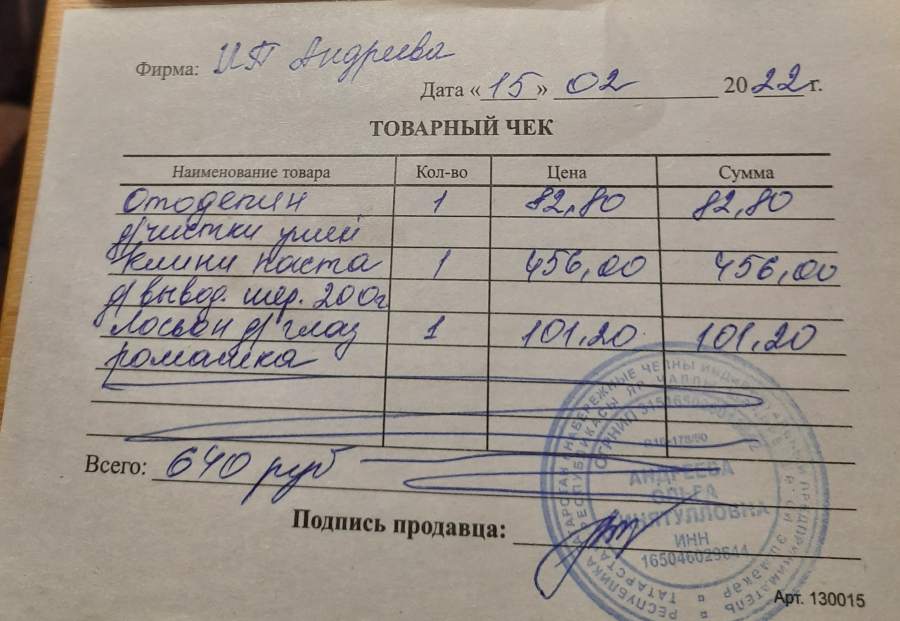 Фирма: ИП Андреева
Дата «15» 02 2022 г.
ТОВАРНЫЙ ЧЕК
Наименование товара Кол-во Цена Сумма
Отодепин 1 82,80 82,80
д/чистки ушей
Клини паста 1 456,00 456,00
д/вывод. шер. 200г
Лосьон д/глаз 1 101,20 101,20
ромашка
Всего: 640 руб
Подпись продавца:
АНДРЕЕВА
ОЛЬГА
ИНН
Арт. 130015